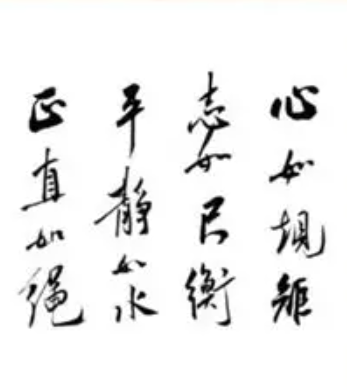 心如規矩
志如尺衡
平静如水
正直如绳